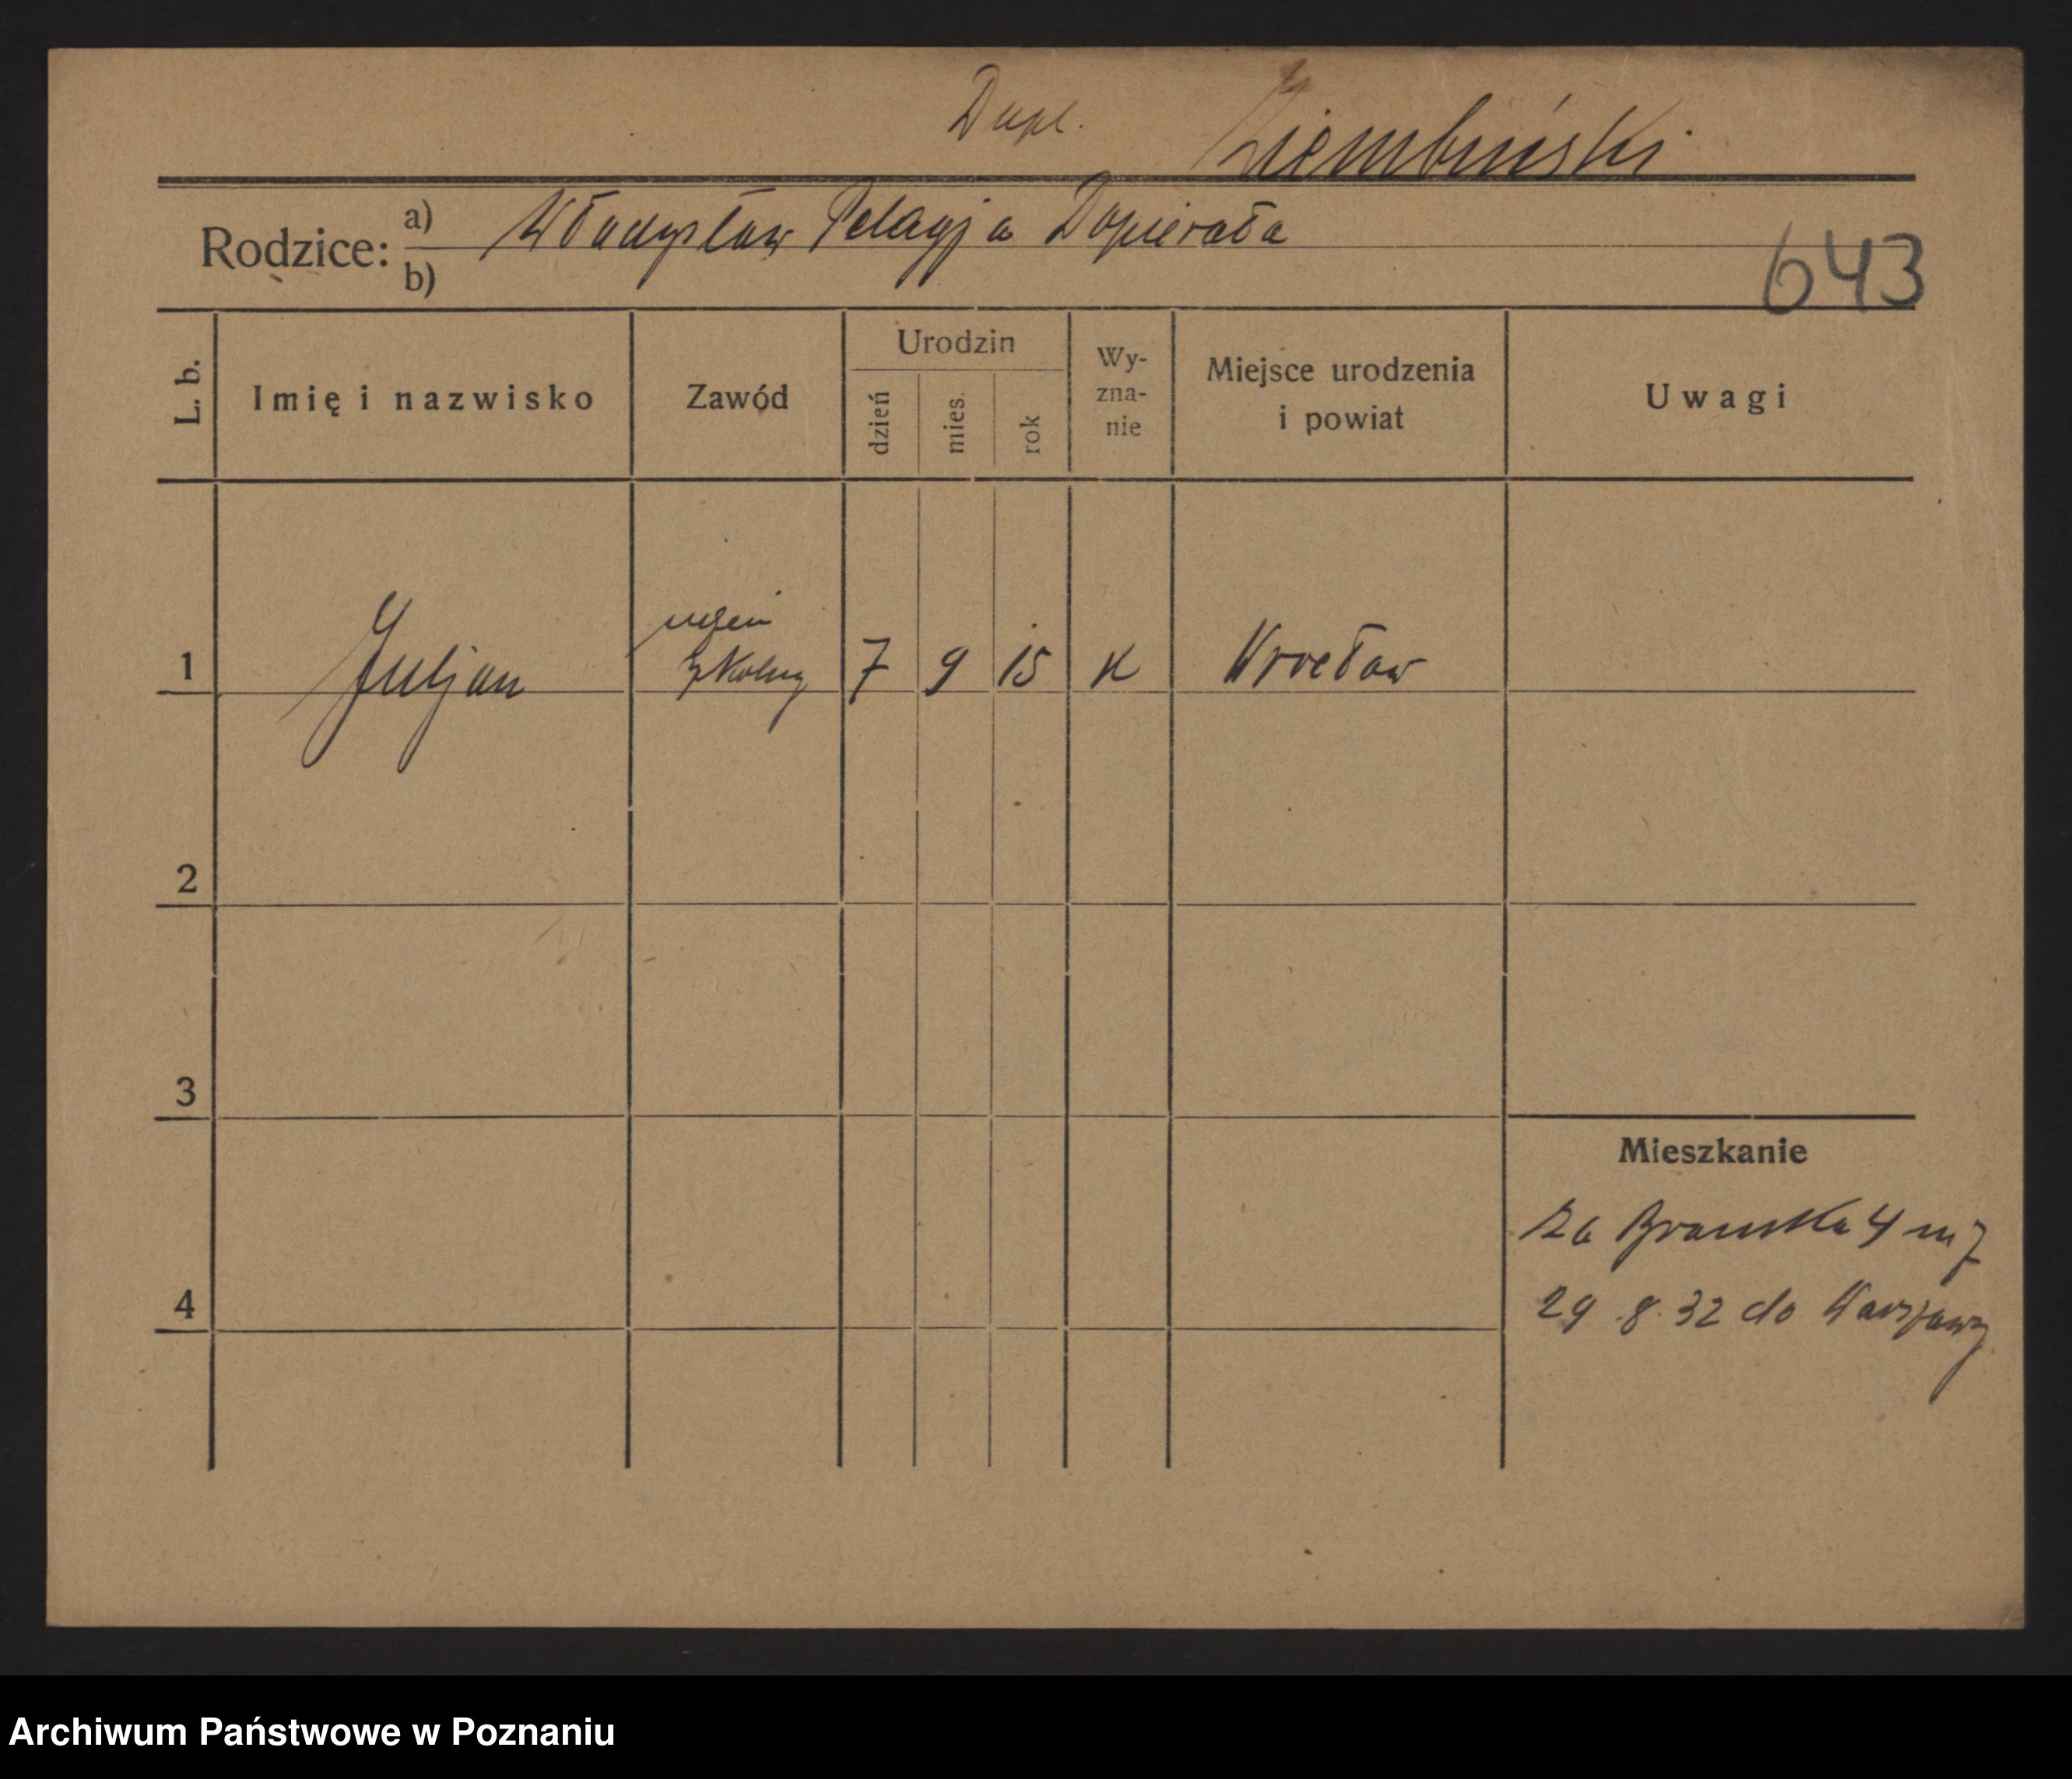 Dupl. Ziembiński
Rodzice: a) Władysław Pelagja Dopierała
b)
643
L. b. Imię i nazwisko Zawód Urodzin dzień mies. rok Wy-zna-nie Miejsce urodzenia i powiat Uwagi
1 Juljan uczeń szkolny 7 9 15 K Wrocław
2
3
Mieszkanie
4 m 7
29.8.32 do Warszawy
4
Archiwum Państwowe w Poznaniu